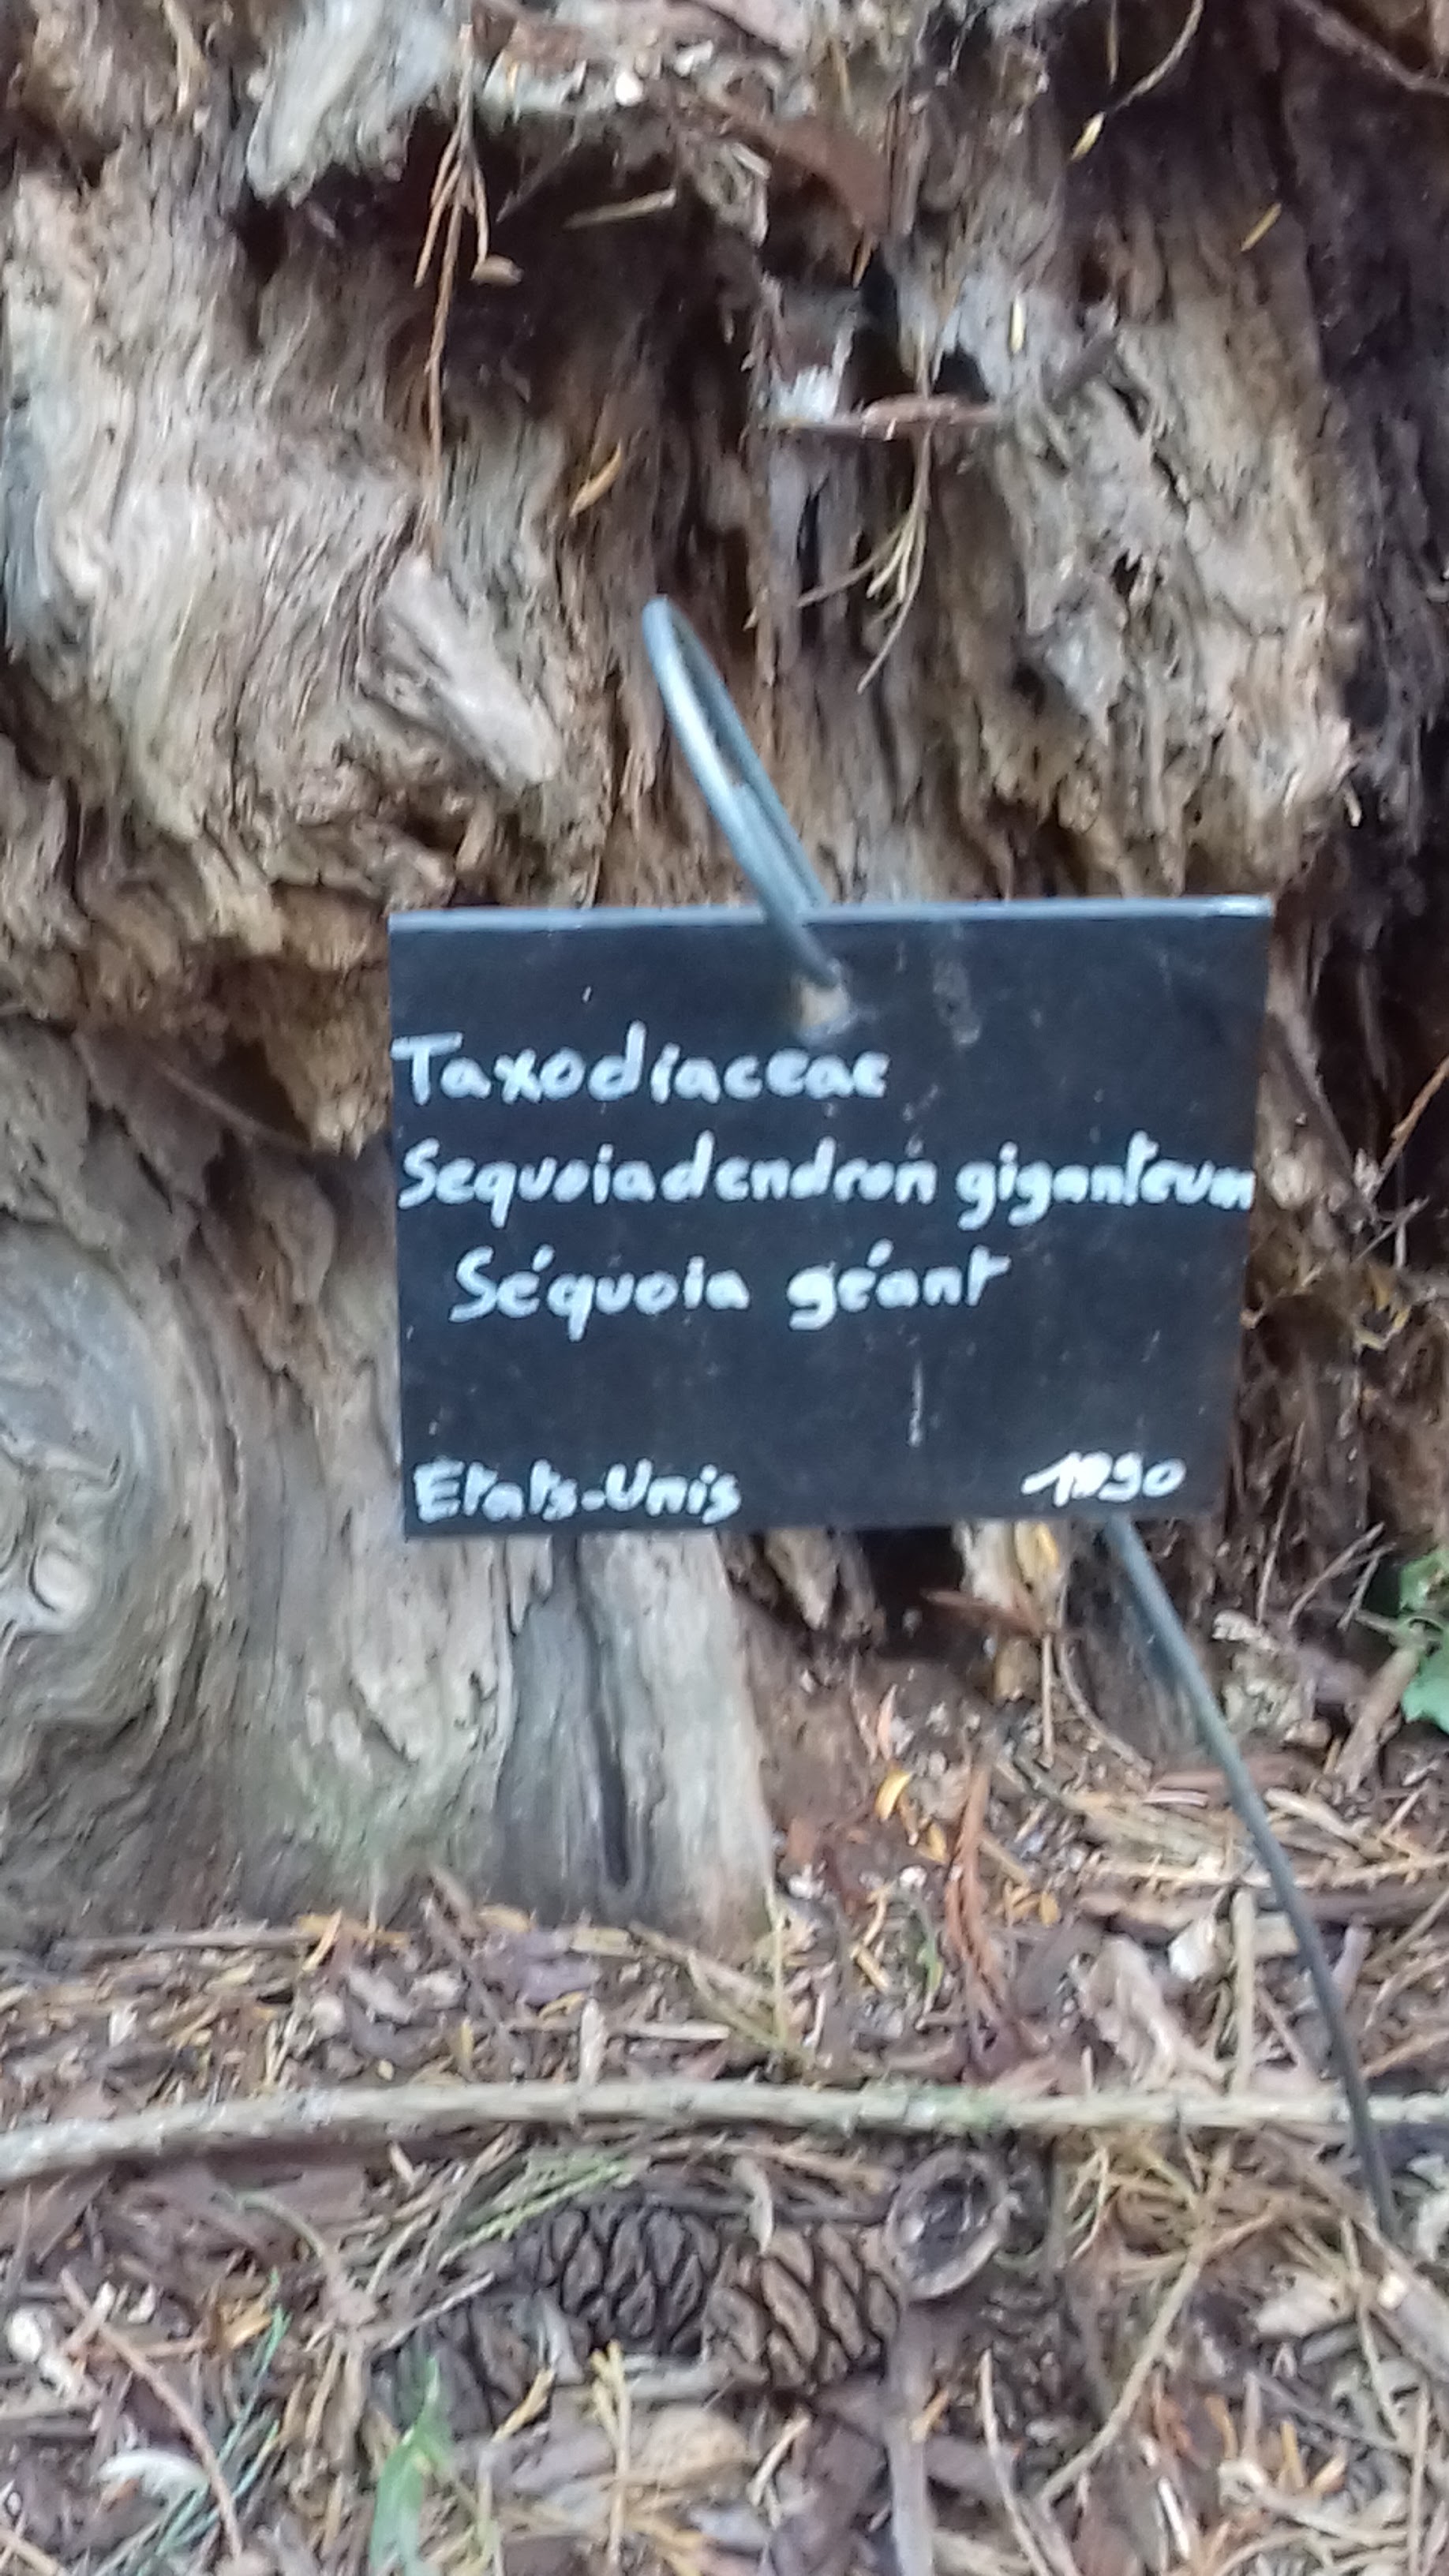 Taxodiaceae
Sequoiadendron giganteum
Séquoia géant
Etats-Unis